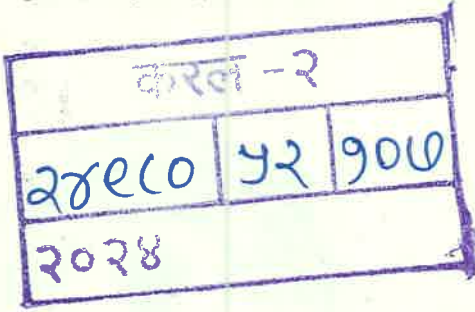 करल -२
२४९८० ५२ १०७
२०२४